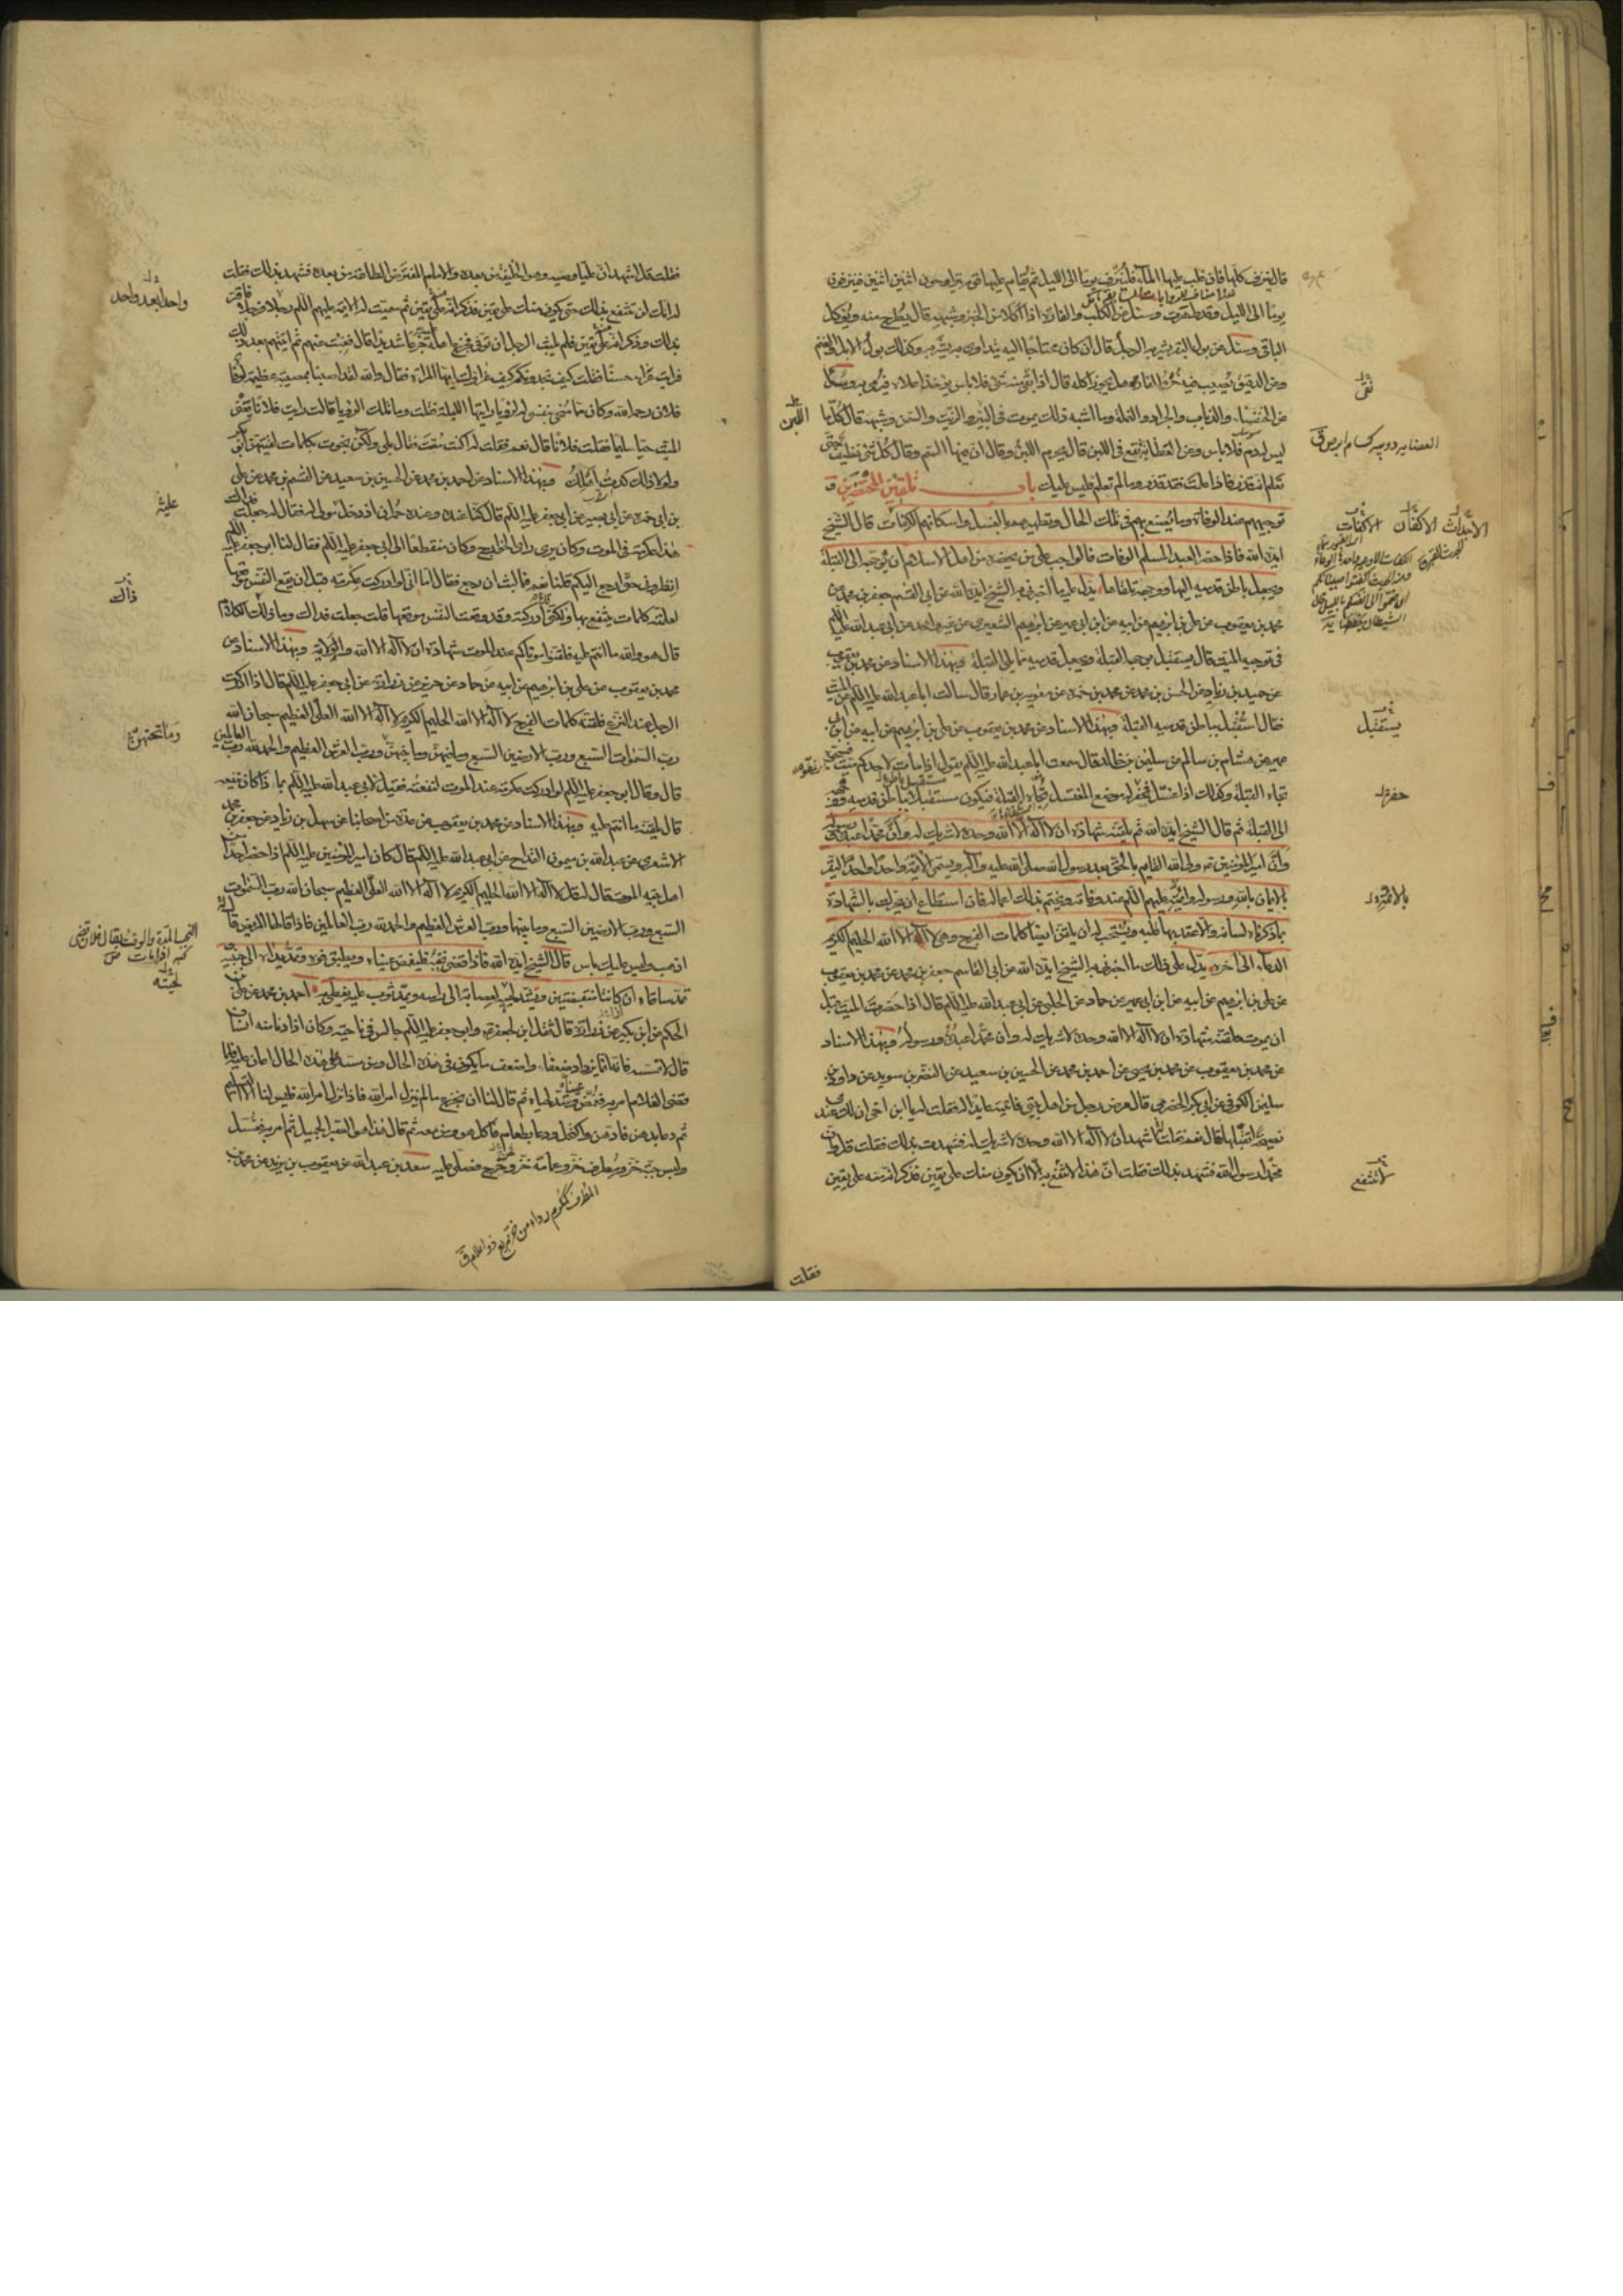 قال ينزف كلها فان غلب عليها الماء فلينزف يوما الى الليل ثم يقام عليها قوم يتراوحون اثنين اثنين فينزفون
يوما الى الليل وقد طهرت وسئل عن الكلب والفارة اذا اكلا من الخبز وشبهه قال يطرح منه ويؤكل
الباقي وسئل عن بول البقر يشربه الرجل قال ان كان محتاجا اليه يتداوى به يشربه وكذلك بول الابل والغنم
وعن الدقيق يصيب فيه خرء الفار هل يجوز اكله قال اذا بقى منه شئ فلا باس يؤخذ اعلاه فيرمى به وسئل
عن الخنفساء والذباب والجراد والنملة وما اشبه ذلك يموت في البئر والزيت والسمن وشبهه قال كل ما
ليس له دم فلا باس وعن العظاية تقع في اللبن قال يحرم اللبن وقال ان فيها السم وقال كل شئ نظيف حتى
تعلم انه قذر فاذا علمت فقد قذر وما لم تعلم فليس عليك باب تلقين المحتضرين و
توجيههم عند الوفاة وما يصنع بهم في تلك الحال وتطهيرهم بالغسل واسكانهم الاكفان قال الشيخ
ايده الله فاذا حضر العبد المسلم الوفاة فالواجب على من يحضره من اهل الاسلام ان يوجهه الى القبلة
ويجعل باطن قدميه اليها ووجهه تلقاءها يدل عليه ما اخبرني به الشيخ ايده الله عن ابي القسم جعفر بن محمد عن
محمد بن يعقوب عن علي بن ابرهيم عن ابيه عن ابن ابي عمير عن ابرهيم الشعيري عن غير واحد عن ابي عبد الله عليه السلم
في توجيه الميت قال يستقبل بوجهه القبلة ويجعل قدميه مما يلي القبلة وبهذا الاسناد عن محمد بن يعقوب
عن حميد بن زياد عن الحسن بن محمد عن محمد بن عن معوية بن عمار قال سالت ابا عبد الله عليه السلم عن الميت
فقال استقبل بباطن قدميه القبلة وبهذا الاسناد عن محمد بن يعقوب عن علي بن ابرهيم عن ابيه عن ابن ابي
عمير عن هشام بن سالم عن سليمن بن خالد قال سمعت ابا عبد الله عليه السلم يقول اذا مات لاحدكم ميت فسجوه
تجاه القبلة وكذلك اذا غسل فيحفر له موضع المغتسل تجاه القبلة فيكون مستقبلا بباطن قدميه ووجهه
الى القبلة ثم قال الشيخ ايده الله ثم يلقنه شهادة ان لا اله الا الله وحده لا شريك له وان محمدا عبده ورسوله
وان امير المؤمنين ولي الله القايم بالحق بعد رسول الله صلى الله عليه وآله ويسمي الائمة واحدا واحدا ليقر
بالايمان بالله ورسوله وائمته عليهم السلم عند وفاته ويختم بذلك اعماله فان استطاع ان يحرك بالشهادة
بما ذكرناه لسانه والا عقد بها قلبه ويستحب له ان يلقن ايضا كلمات الفرج وهي لا اله الا الله الحليم الكريم
الدعاء الى آخره يدل على ذلك ما اخبرني به الشيخ ايده الله عن ابي القاسم جعفر بن محمد عن محمد بن يعقوب
عن علي بن ابرهيم عن ابيه عن ابن ابي عمير عن حماد عن الحلبي عن ابي عبد الله عليه السلم قال اذا حضرت الميت قبل
ان يموت فلقنه شهادة ان لا اله الا الله وحده لا شريك له وان محمدا عبده ورسوله وبهذا الاسناد
عن محمد بن يعقوب عن محمد بن يحيى عن احمد بن محمد عن الحسين بن سعيد عن النضر بن سويد عن داود بن
سليمن الكوفي عن ابي بكر الحضرمي قال مرض رجل من اهل بيتي فاتيته عايدا له فقلت له يا ابن اخي ان لك عندي
نصيحة اتقبلها قال نعم فقلت قل اشهد ان لا اله الا الله وحده لا شريك له فشهد بذلك فقلت قل وان
محمدا رسول الله فشهد بذلك فقلت ان هذا لا تنتفع به الا ان يكون منك على يقين فذكر انه منه على يقين
فقلت
نقى
اللبن
يستقبل
حفر له
لا تنتفع
فقلت قل اشهد ان عليا وصيه وهو الخليفة من بعده والامام المفترض الطاعة من بعده فشهد بذلك فقلت
له انك لن تنتفع بذلك حتى يكون منك على يقين فذكر انه منه على يقين ثم سميت له الائمة عليهم السلم رجلا رجلا فاقر
بذلك وذكر انه على يقين فلم يلبث الرجل ان توفي فجزع اهله عليه جزعا شديدا قال فغبت عنهم ثم اتيتهم بعد ذلك
فرايت عزاء حسنا فقلت كيف تجدونكم كيف عزاؤك ايتها المراة فقالت والله لقد اصبنا بمصيبة عظيمة بوفاة
فلان رحمه الله وكان مما سخى بنفسي لرؤيا رايتها الليلة فقلت وما تلك الرؤيا قالت رايت فلانا تعني
الميت حيا سليما فقلت فلانا قال نعم فقلت له اكنت مت فقال بلى ولكن نجوت بكلمات لقنيهن ابو بكر
ولولا ذلك كدت اهلك وبهذا الاسناد عن احمد بن محمد عن الحسين بن سعيد عن القسم بن محمد عن علي
بن ابي حمزة عن ابي بصير عن ابي جعفر عليه السلم قال كنا عنده وعنده حمران اذ دخل مولى له فقال له جعلت فداك
هذا عكرمة في الموت وكان يرى راى الخوارج وكان منقطعا الى ابي جعفر عليه السلم فقال لنا ابو جعفر عليه السلم
انظروني حتى ارجع اليكم قلنا نعم فما لبث ان رجع فقال اما اني لو ادركت عكرمة قبل ان تقع النفس موقعها
لعلمته كلمات ينتفع بها ولكني ادركته وقد وقعت النفس موقعها قلت جعلت فداك وما ذلك الكلام
قال هو والله ما انتم عليه فلقنوا موتاكم عند الموت شهادة ان لا اله الا الله والولاية وبهذا الاسناد عن
محمد بن يعقوب عن علي بن ابرهيم عن ابيه عن حماد عن حريز عن زرارة عن ابي جعفر عليه السلم قال اذا ادركت
الرجل عند النزع فلقنه كلمات الفرج لا اله الا الله الحليم الكريم لا اله الا الله العلي العظيم سبحان الله
رب السموات السبع ورب الارضين السبع وما فيهن وما بينهن ورب العرش العظيم والحمد لله رب العالمين
قال وقال ابو جعفر عليه السلم لو ادركت عكرمة عند الموت لنفعته فقيل لابي عبد الله عليه السلم بما ذا كان ينفعه
قال يلقنه ما انتم عليه وبهذا الاسناد عن محمد بن يعقوب عن عدة من اصحابنا عن سهل بن زياد عن جعفر بن محمد
الاشعري عن عبد الله بن ميمون القداح عن ابي عبد الله عليه السلم قال كان امير المؤمنين عليه السلم اذا حضر احدا من
اهل بيته الموت قال له قل لا اله الا الله الحليم الكريم لا اله الا الله العلي العظيم سبحان الله رب السموات
السبع ورب الارضين السبع وما بينهما ورب العرش العظيم والحمد لله رب العالمين فاذا قالها المريض قال
اذهب وليس عليك باس قال الشيخ ايده الله فاذا قضى نحبه فليغمض عيناه ويطبق فوه وتمد يداه الى جنبيه
تمد ساقاه ان كانتا منقبضتين ويشد لحيته بعصابة الى راسه ويمد ثوب عليه يغطى به احمد بن محمد عن علي بن
الحكم عن ابن بكير عن زرارة قال ثقل ابن لجعفر وابو جعفر عليه السلم جالس في ناحية وكان اذا دنا منه انسان
قال لا تمسه فانه انما يزداد ضعفا واضعف ما يكون في هذه الحال ومن مسه على هذه الحال اعان عليه فلما
قضى الغلام امر به فغمض عيناه وشد لحياه ثم قال لنا ان نجزع ما لم ينزل امر الله فاذا نزل امر الله فليس لنا الا التسليم
ثم دعا بدهن فادهن واكتحل ودعا بطعام فاكل هو ومن معه ثم قال هذا هو الصبر الجميل ثم امر به فغسل
ولبس جبة خز ومطرف خز وعمامة خز وخرج فصلى عليه سعد بن عبد الله عن يعقوب بن يزيد عن محمد بن
واحدا بعد واحد
عليه
ذاك
وما تحتهن
لحيته